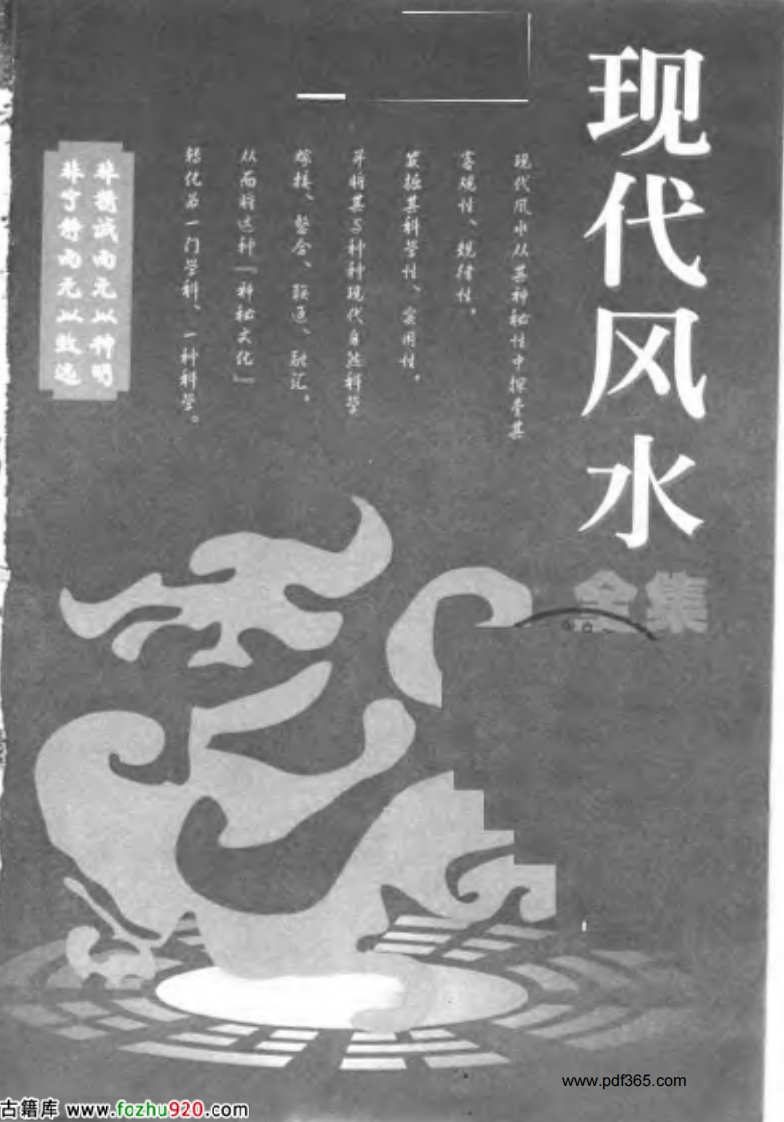 现代风水
全集
现代风水从其神秘性中探索其
客观性、规律性，
发掘其科学性、实用性，
并将其与种种现代自然科学
嫁接、整合、联通、融汇，
从而将这种『神秘文化』
转化为一门学科、一种科学。
非精诚而无以神明
非宁静而无以致远
www.pdf365.com
古籍库 www.fozhu920.com